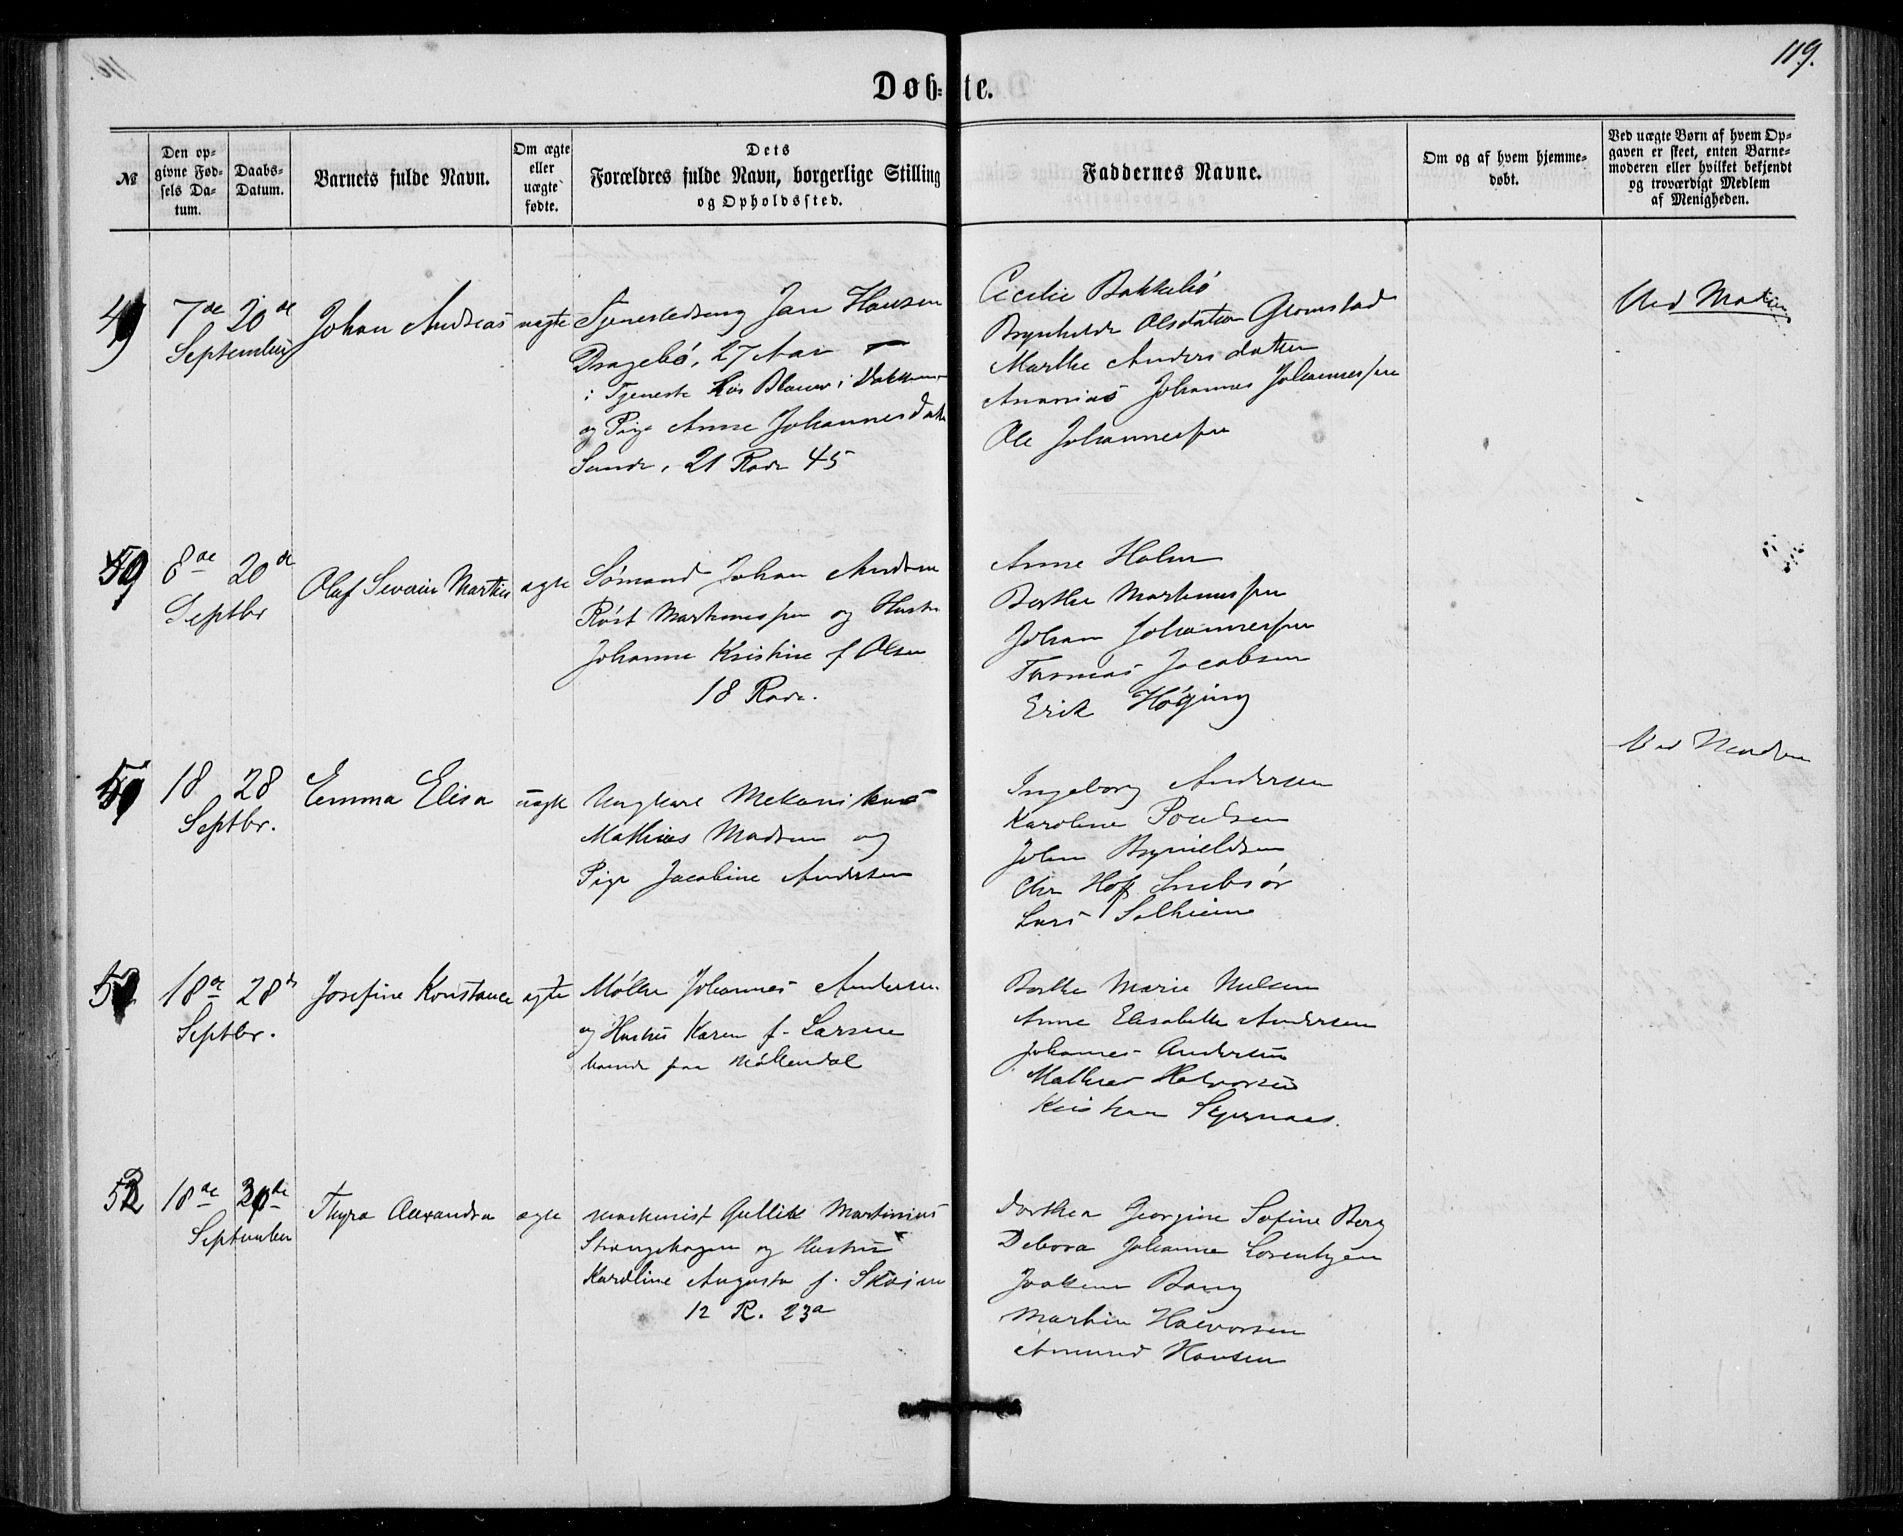 119.
Døb-te.
№
Den op-
givne Fød-
sels Da-
tum.
Daabs-
Datum.
Barnets fulde Navn.
Om ægte
eller
uægte
fødte.
Dets
Forældres fulde Navn, borgerlige Stilling
og Opholdssted.
Faddernes Navne.
Om og af hvem hjemme-
døbt.
Ved uægte Børn af hvem Op-
gaven er skeet, enten Barne-
moderen eller hvilket bekjendt
og troværdigt Medlem
af Menigheden.
49
7de
September
20de
Johan Andreas
uægte
Tjenestedreng Jan Hansen
Dragebø, 27 Aar
i Tjeneste hos Blauw i
og Pige Anne Johannesdatter
Sande, 21 Rode 45
Cecilie Bakkebø
Brynhilde Olsdatter Gromstad
Marthe Andersdatter
Ananias Johannes Johannessen
Ole Johannessen
50
8de
Septbr
20de
Olaf Severin Martin
ægte
Sømand Johan Andreas
Røst Martinussen og Hustru
Johanne Kristine f Olsen
18 Rode.
Anne Holm
Berthe Martinussen
Johan Johannessen
Tomas Jacobsen
Erik
18
Septbr.
28
Emma Elisa
uægte
Ungkarl Mekanikus
Mathias Madsen og
Pige Jacobine Andersen
Ingeborg Andersen
Karoline Poulsen
John Brynildsen
Chr Hoff
Lars Solheim
Ved Madsen
18de
Septbr.
28de
Josefine Konstance
ægte
Møller Johannes Andersen
og Hustru Karen f. Larsen
boende paa Møllendal
Berthe Marie Nilsen
Anne Elisabeth Andersen
Johannes Andersen
Mathias Halvorsen
Kristian
52
18de
September
Thyra Alexandra
ægte
Maskinist Gullik Martinius
Strangehagen og Hustru
Karoline Augusta f.
12 R. 23a
Dorthea Georgine Sofine Berg
Debora Johanne Lorentzen
Joakim Bang
Martin Halvorsen
Amund Hansen